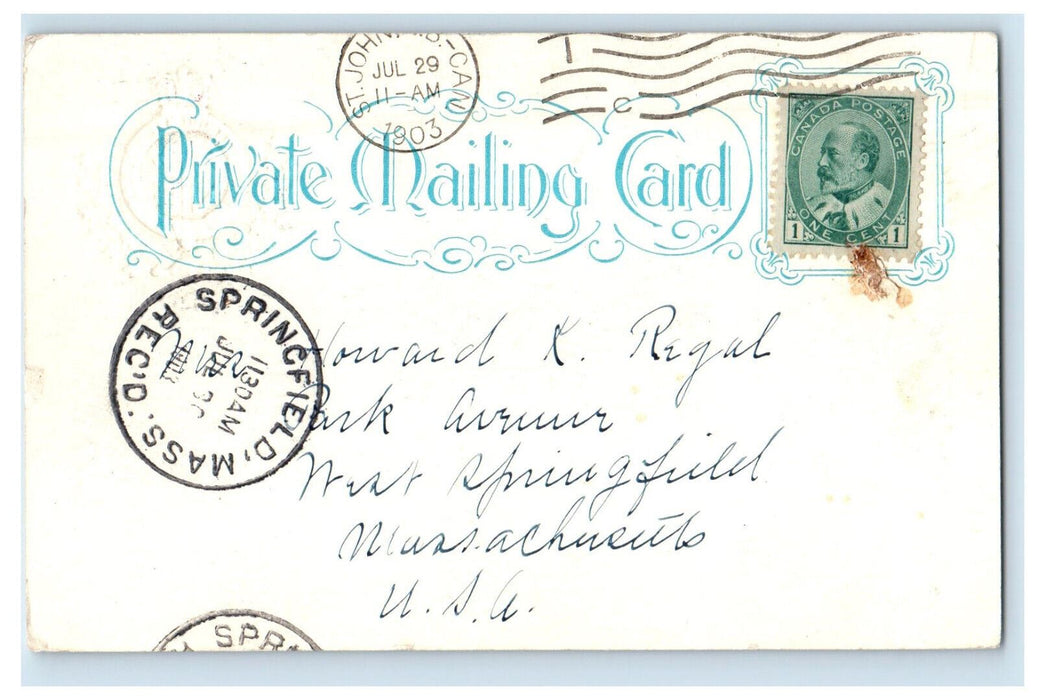 ST. JOHN, N.B.-CAN
JUL 29
11-AM
1903
C
Private Mailing Card
CANADA POSTAGE
1 ONE CENT 1
SPRINGFIELD, MASS. REC'D.
1130AM
Howard K. Regal
Park Avenue
West Springfield
Massachusetts
U.S.A.
SPRI